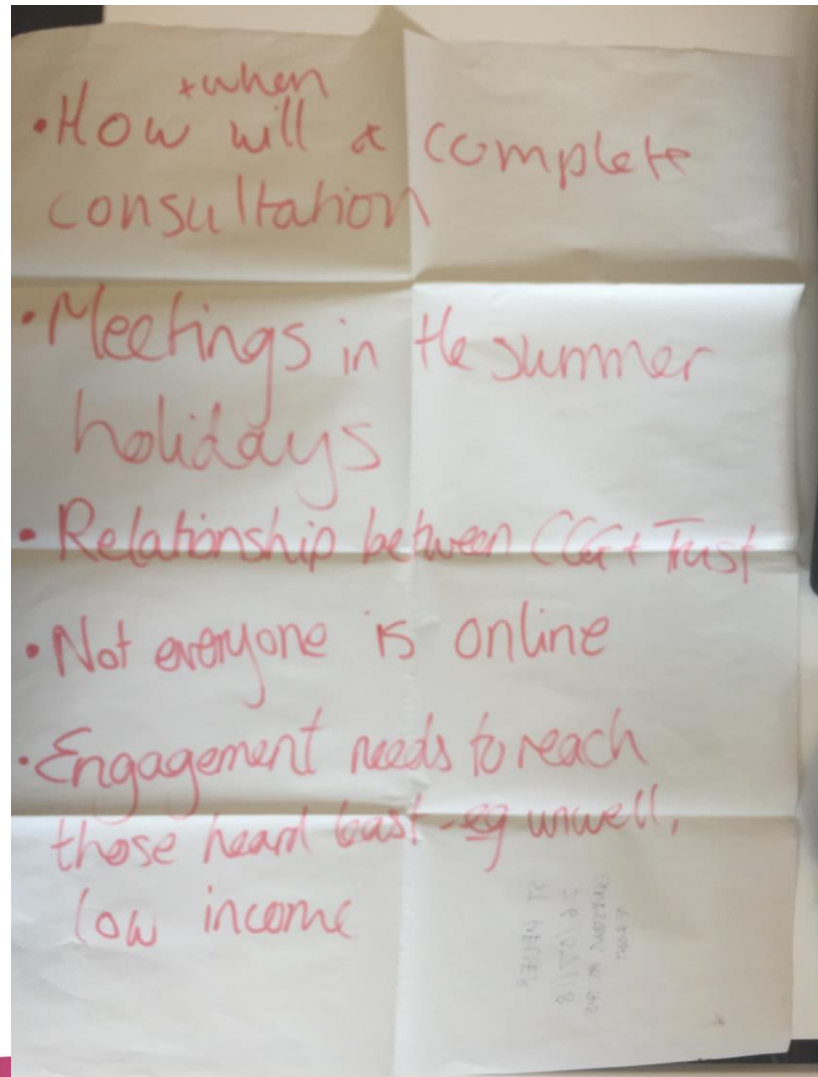 + when
• How will a complete
consultation
• Meetings in the summer
holidays
• Relationship between CCG + Trust
• Not everyone is online
• Engagement needs to reach
those heard least - eg unwell,
low income